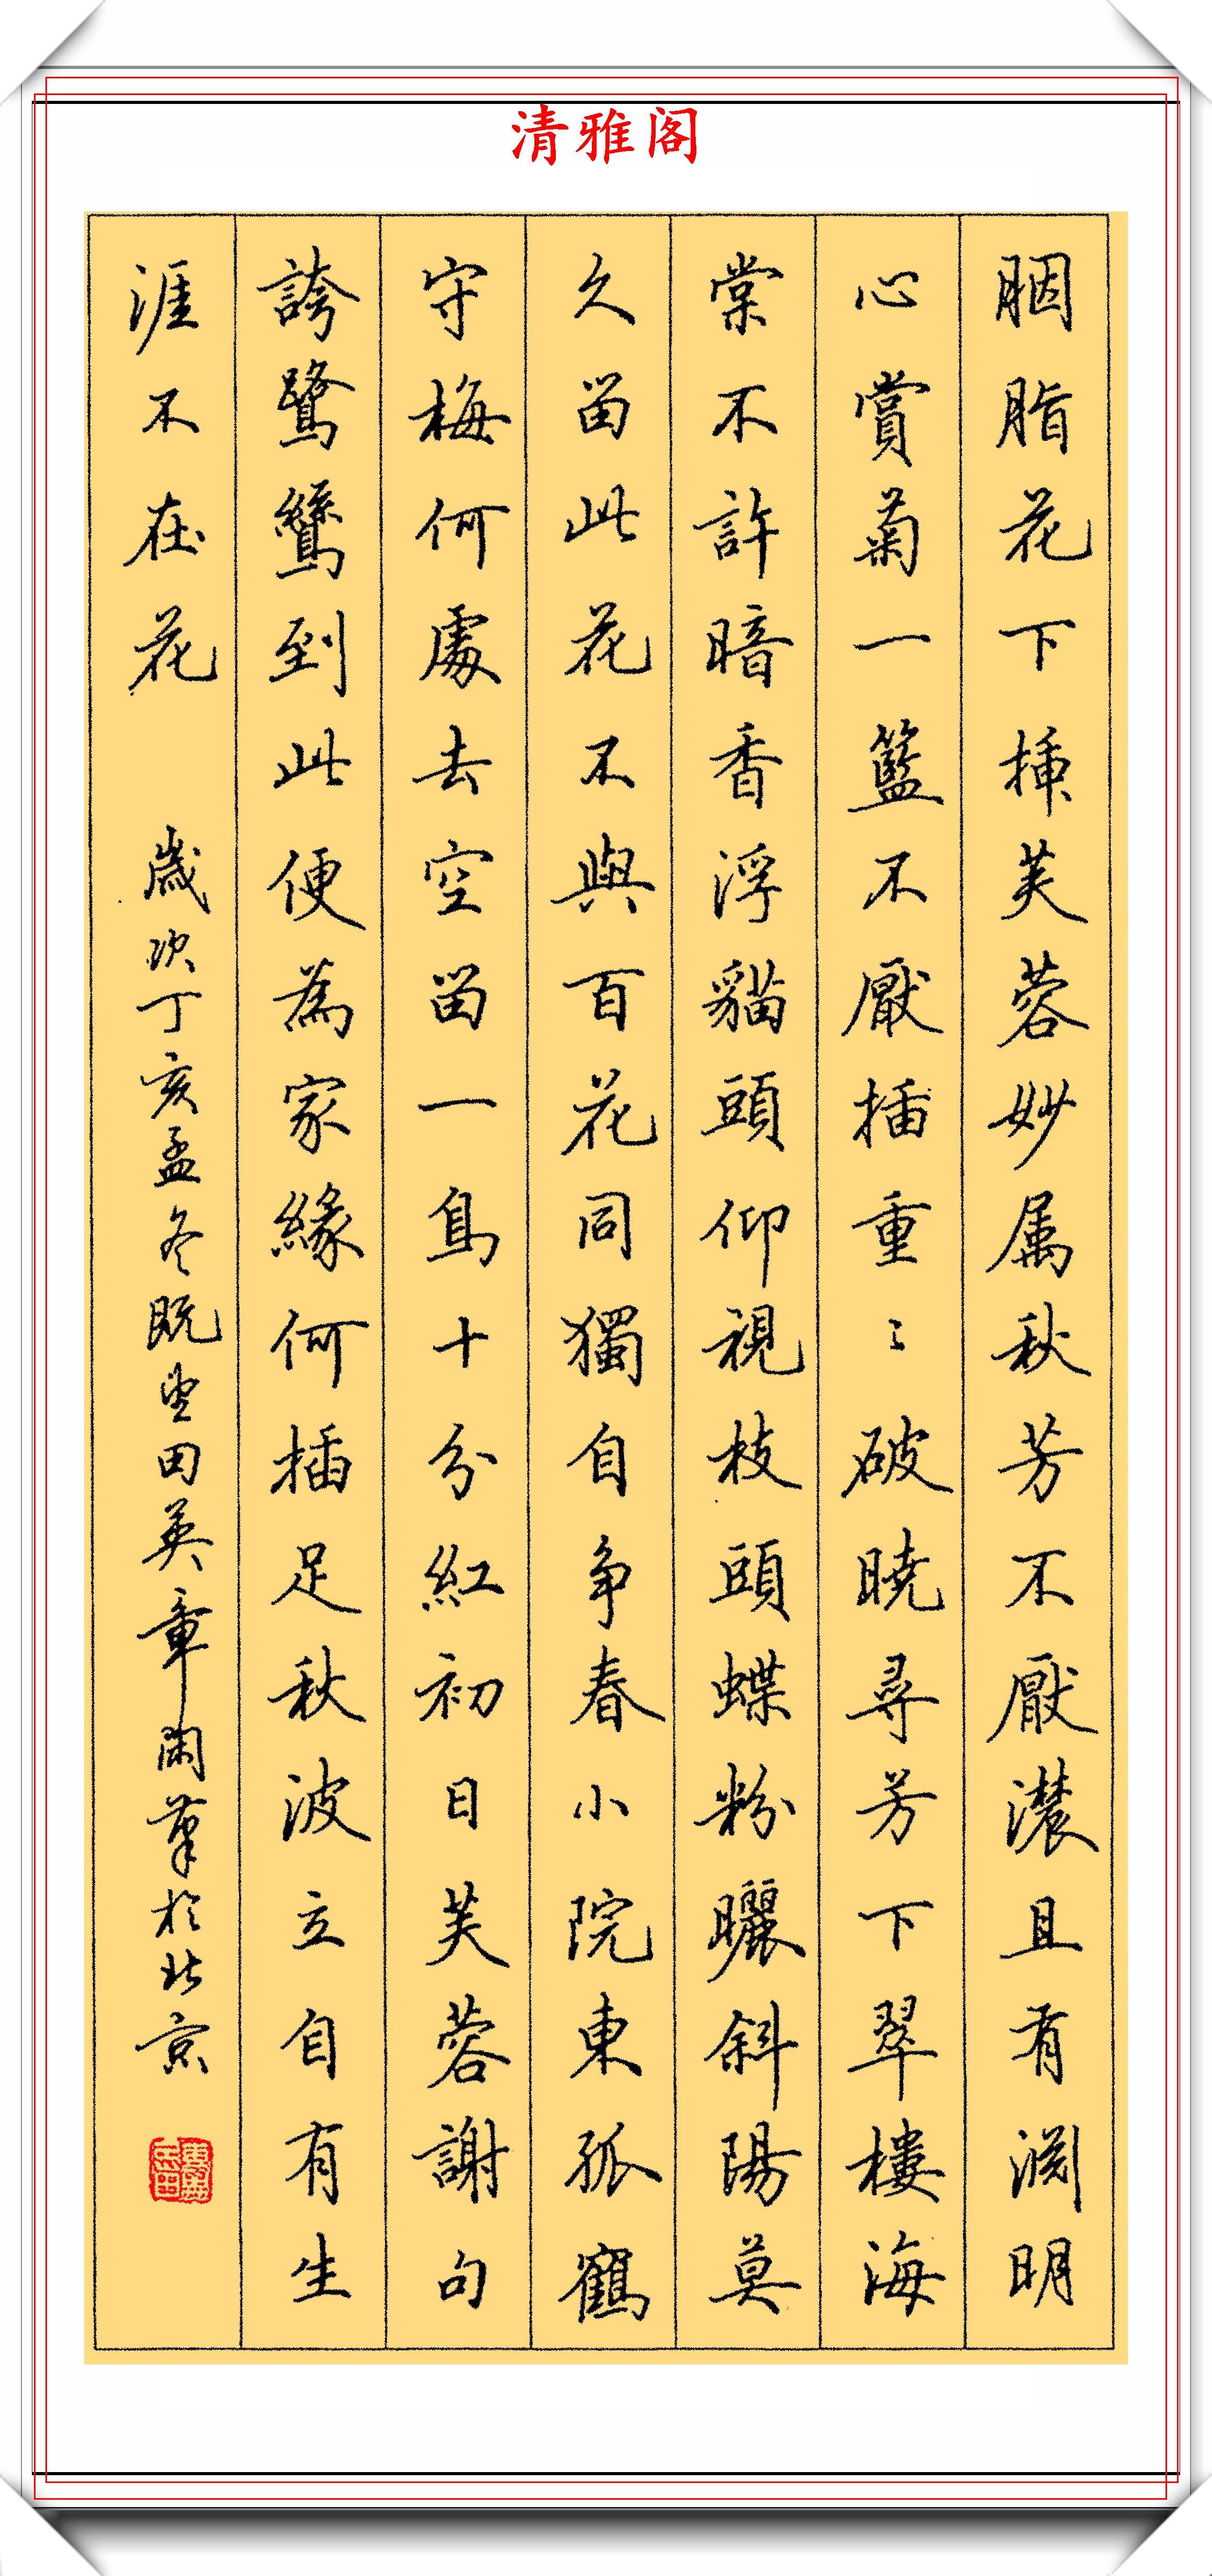 清雅阁
胭脂花下插芙蓉妙属秋芳不厭濃且有渊明
心賞菊一籃不厭插重〻破曉尋芳下翠樓海
棠不許暗香浮貓頭仰視枝頭蝶粉曬斜陽莫
久留此花不與百花同獨自争春小院東孤鶴
守梅何處去空留一鳥十分紅初日芙蓉謝句
誇鷺鷥到此便為家緣何插足秋波立自有生
涯不在花
歲次丁亥孟冬既望田英章閑筆於北京